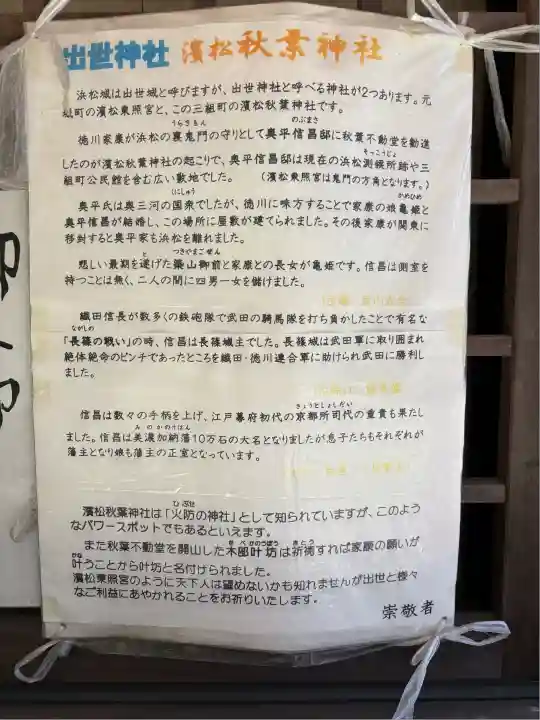 出世神社 濱松秋葉神社
浜松城は出世城と呼びますが、出世神社と呼べる神社が2つあります。元
城町の濱松東照宮と、この三組町の濱松秋葉神社です。
うらきもん のぶまさ
徳川家康が浜松の裏鬼門の守りとして奥平信昌邸に秋葉不動堂を勧進
そっこうじょ
したのが濱松秋葉神社の起こりで、奥平信昌邸は現在の浜松測候所跡や三
組町公民館を含む広い敷地でした。 (濱松東照宮は鬼門の方角となります。)
にしゅう かめひめ
奥平氏は奥三河の国衆でしたが、徳川に味方することで家康の娘亀姫と
奥平信昌が結婚し、この場所に屋敷が建てられました。その後家康が関東に
移封すると奥平家も浜松を離れました。
と つきやまごぜん
悲しい最期を遂げた築山御前と家康との長女が亀姫です。信昌は側室を
持つことは無く、二人の間に四男一女を儲けました。
織田信長が数多くの鉄砲隊で武田の騎馬隊を打ち負かしたことで有名な
ながしの
「長篠の戦い」の時、信昌は長篠城主でした。長篠城は武田軍に取り囲まれ
絶体絶命のピンチであったところを織田・徳川連合軍に助けられ武田に勝利し
ました。
きょうとしょしだい
信昌は数々の手柄を上げ、江戸幕府初代の京都所司代の重責も果たし
みのかのうはん
ました。信昌は美濃加納藩10万石の大名となりましたが息子たちもそれぞれが
藩主となり娘も藩主の正室となっています。
ひぶせ
濱松秋葉神社は「火防の神社」として知られていますが、このよう
なパワースポットでもあるといえます。
きべかのうぼう きとう
また秋葉不動堂を開山した木部叶坊は祈祷すれば家康の願いが
かな
叶うことから叶坊と名付けられました。
濱松東照宮のように天下人は望めないかも知れませんが出世と様々
なご利益にあやかれることをお祈りいたします。
崇敬者